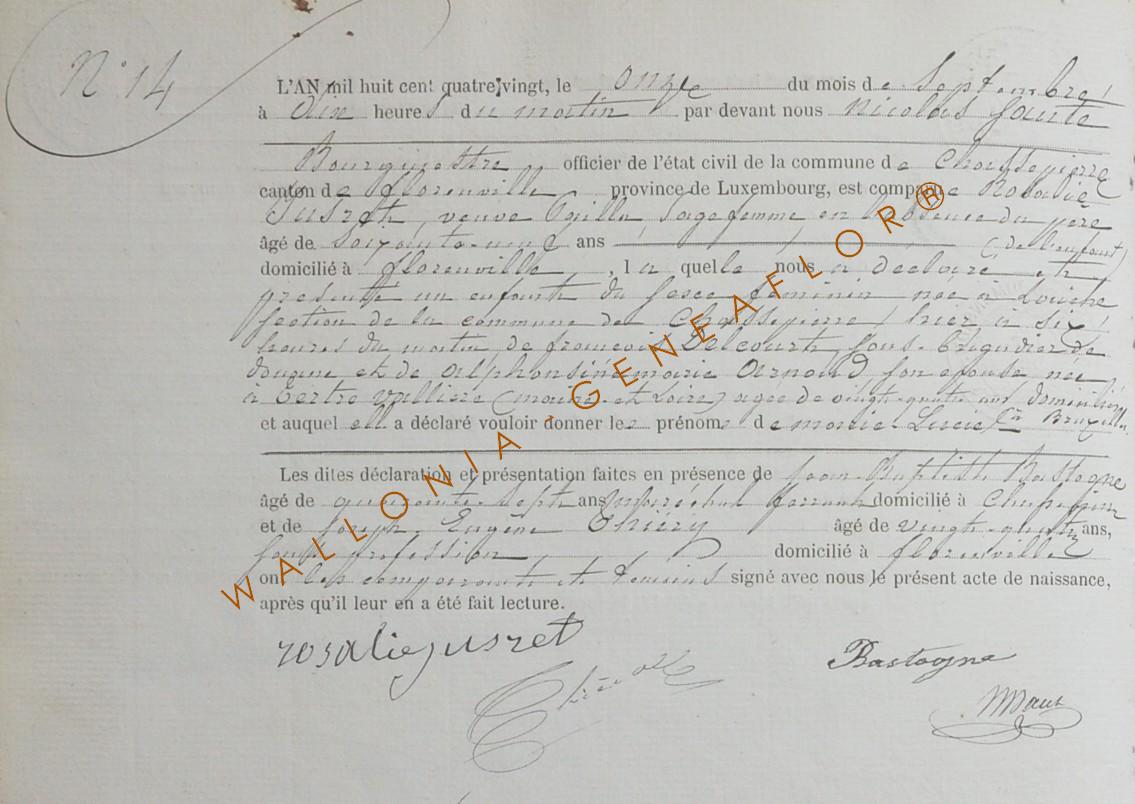 N° 14
L'AN mil huit cent quatre-vingt, le onze du mois de Septembre
à dix heures du matin par devant nous Nicolas
Bourgmestre officier de l'état civil de la commune de Chassepierre
canton de Florenville, province de Luxembourg, est comparue Rosalie
Jusret, veuve sagefemme en l'absence du père
(de l'enfant)
âgé de soixante-neuf ans
domicilié à Florenville, la quelle nous a déclaré et
présenté un enfant du sexe féminin née à Laiche
section de la commune de Chassepierre, hier à six
heures du matin de françois Delcourt, sous-brigadier de
douane et de alphonsine marie Arnaud son épouse née
à (maine-et-Loire) agée de vingt-quatre ans domiciliés
et auquel elle a déclaré vouloir donner les prénoms de marie Lucie
Les dites déclaration et présentation faites en présence de Jean-Baptiste Bastogne
âgé de quarante sept ans, maréchal ferrant domicilié à Chassepierre
et de Joseph Eugène Thiéry âgé de vingt-quatre ans,
sans profession domicilié à florenville
ont les comparants et témoins signé avec nous le présent acte de naissance,
après qu'il leur en a été fait lecture.
rosalie jusret
Bastogne
WALLONIA - GENEAFLOR®